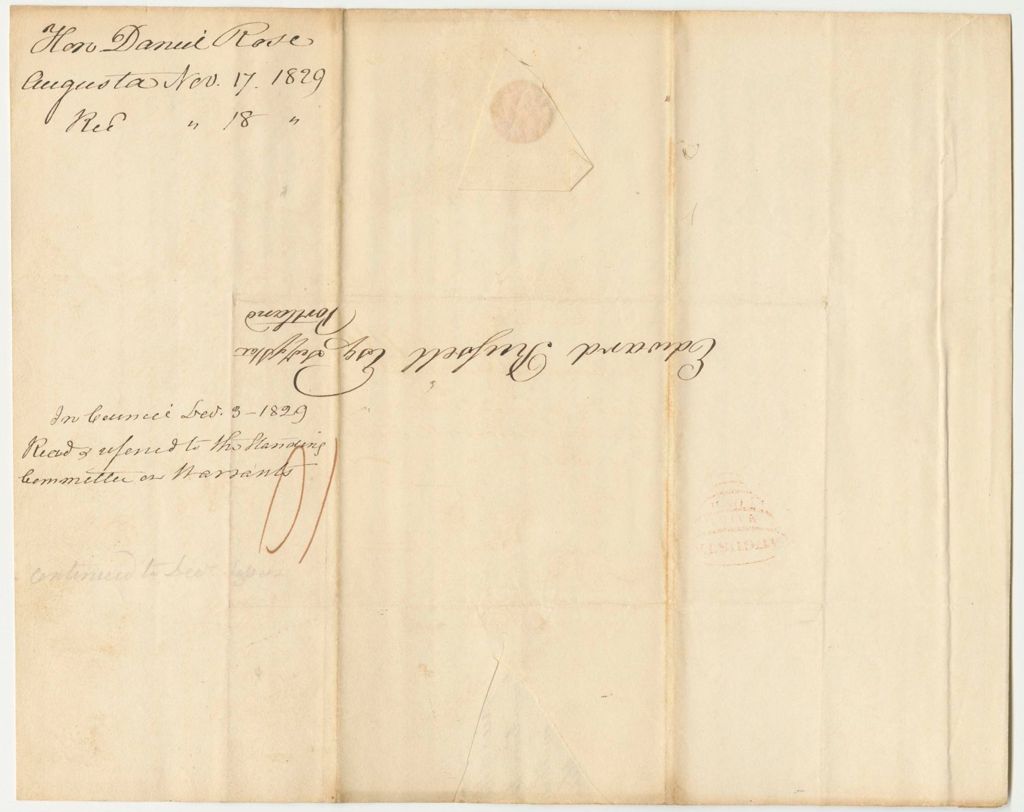 Hon Daniel Rose
Augusta Nov. 17. 1829
Recd " 18 "
Edward Russell Esq
Portland
In Council Dec. 3 - 1829
Read & referred to the Standing
Committee on Warrants
10
continued to